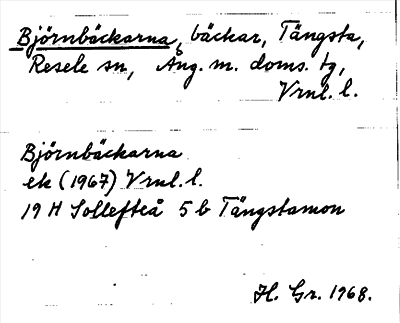 Björnbäckarna, bäckar, Tängsta,
Resele sn, Ång. m. doms. tg,
Vrnl. l.
Björnbäckarna
ek (1967) Vrnl. l.
19 H Sollefteå 5 b Tängstamon
H. Gr. 1968.